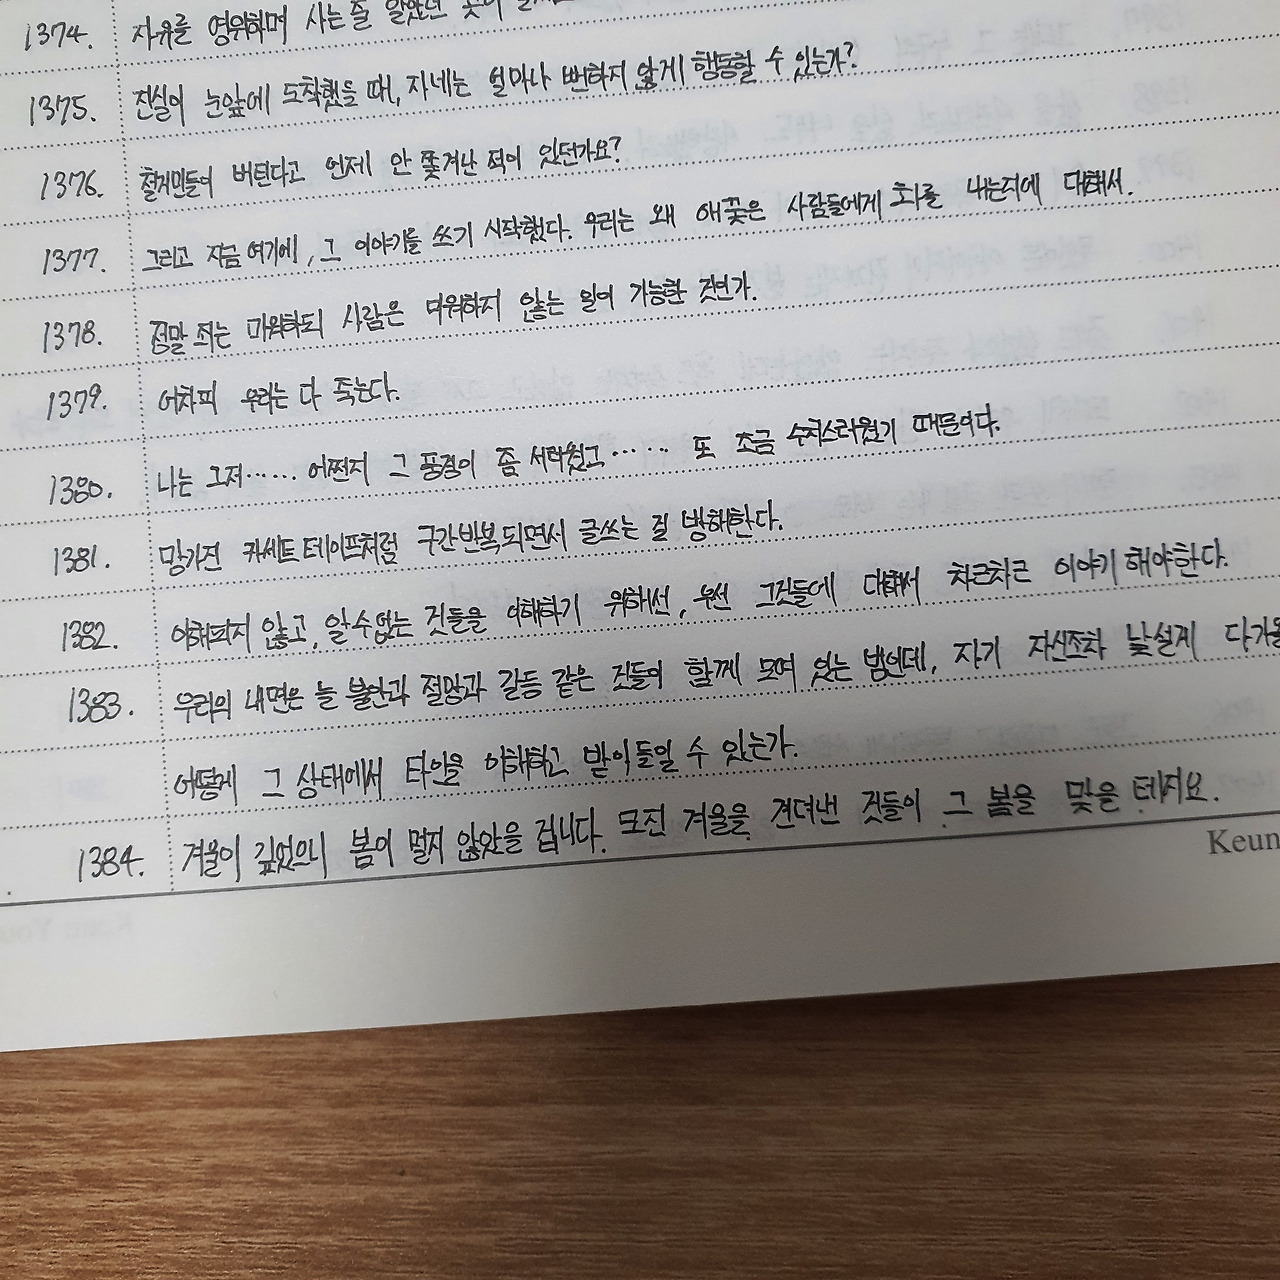 1374. 자유를 영위하며 사는 줄 알았던 곳이
1375. 진실이 눈앞에 도착했을 때, 자네는 얼마나 뻔하지 않게 행동할 수 있는가?
1376. 철거민들이 버틴다고 언제 안 쫓겨난 적이 있던가요?
1377. 그리고 지금 여기에, 그 이야기를 쓰기 시작했다. 우리는 왜 애꿎은 사람들에게 화를 내는지에 대해서.
1378. 정말 죄는 미워하되 사람은 미워하지 않는 일이 가능한 것인가.
1379. 어차피 우리는 다 죽는다.
1380. 나는 그저…… 어쩐지 그 풍경이 좀 서러웠고…… 또 조금 수치스러웠기 때문이다.
1381. 망가진 카세트 테이프처럼 구간반복되면서 글쓰는 걸 방해한다.
1382. 이해되지 않고, 알 수 없는 것들을 이해하기 위해선, 우선 그것들에 대해서 차근차근 이야기 해야한다.
1383. 우리의 내면은 늘 불안과 절망과 갈등 같은 것들이 함께 모여 있는 법인데, 자기 자신조차 낯설게 다가올
어떻게 그 상태에서 타인을 이해하고 받아들일 수 있는가.
1384. 겨울이 깊었으니 봄이 멀지 않았을 겁니다. 모진 겨울을 견뎌낸 것들이 그 봄을 맞을 테지요.
Keun